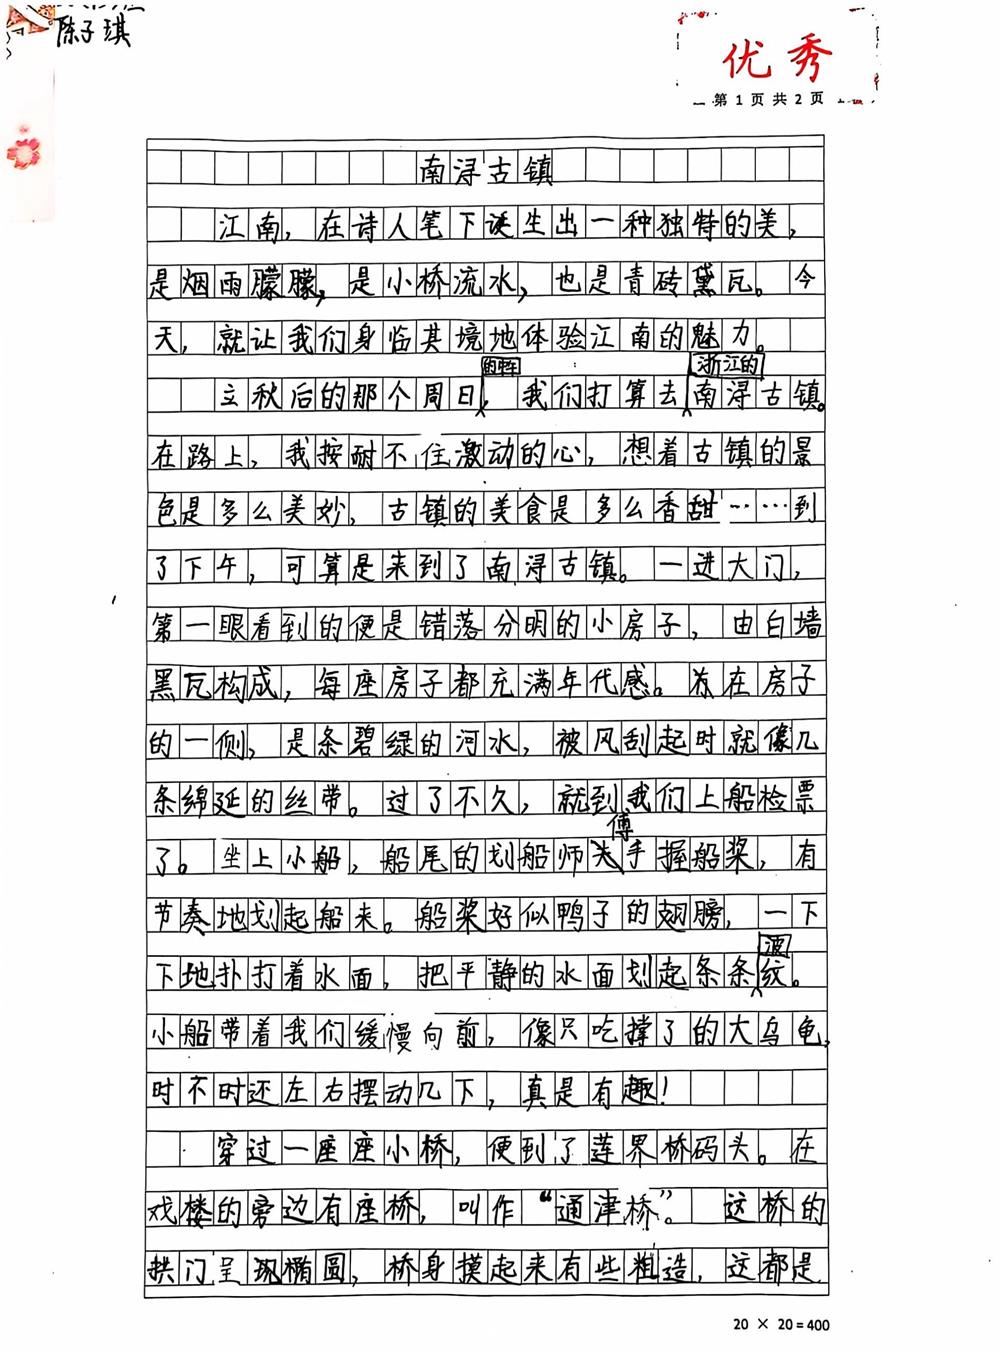 陈子琪
优秀
第1页共2页
南浔古镇
江南，在诗人笔下诞生出一种独特的美，
是烟雨朦朦，是小桥流水，也是青砖黛瓦。今
天，就让我们身临其境地体验江南的魅力。
浙江的
立秋后的那个周日，我们打算去南浔古镇。
在路上，我按耐不住激动的心，想着古镇的景
色是多么美妙，古镇的美食是多么香甜……到
了下午，可算是来到了南浔古镇。一进大门，
第一眼看到的便是错落分明的小房子，由白墙
黑瓦构成，每座房子都充满年代感。在房子
的一侧，是条碧绿的河水，被风刮起时就像几
条绵延的丝带。过了不久，就到我们上船检票
傅
了。坐上小船，船尾的划船师手握船桨，有
节奏地划起船来。船桨好似鸭子的翅膀，一下
波
下地扑打着水面，把平静的水面划起条条纹。
小船带着我们缓慢向前，像只吃撑了的大乌龟，
时不时还左右摆动几下，真是有趣！
穿过一座座小桥，便到了莲界桥码头。在
戏楼的旁边有座桥，叫作“通津桥”。这桥的
拱门呈现椭圆，桥身摸起来有些粗造，这都是
20 × 20=400